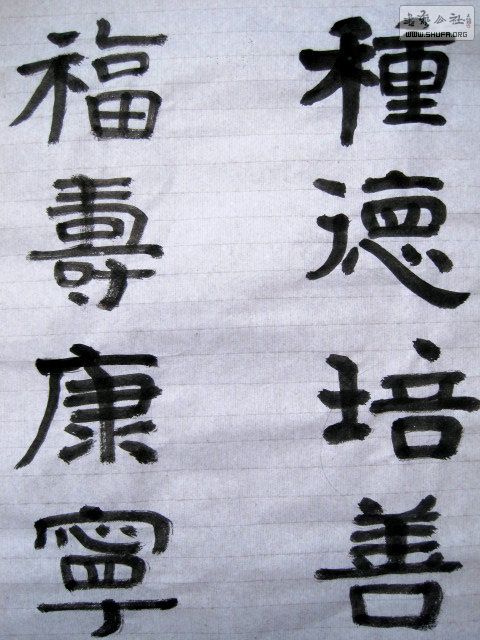 種德培善
福壽康寧
WWW.SHUFA.ORG